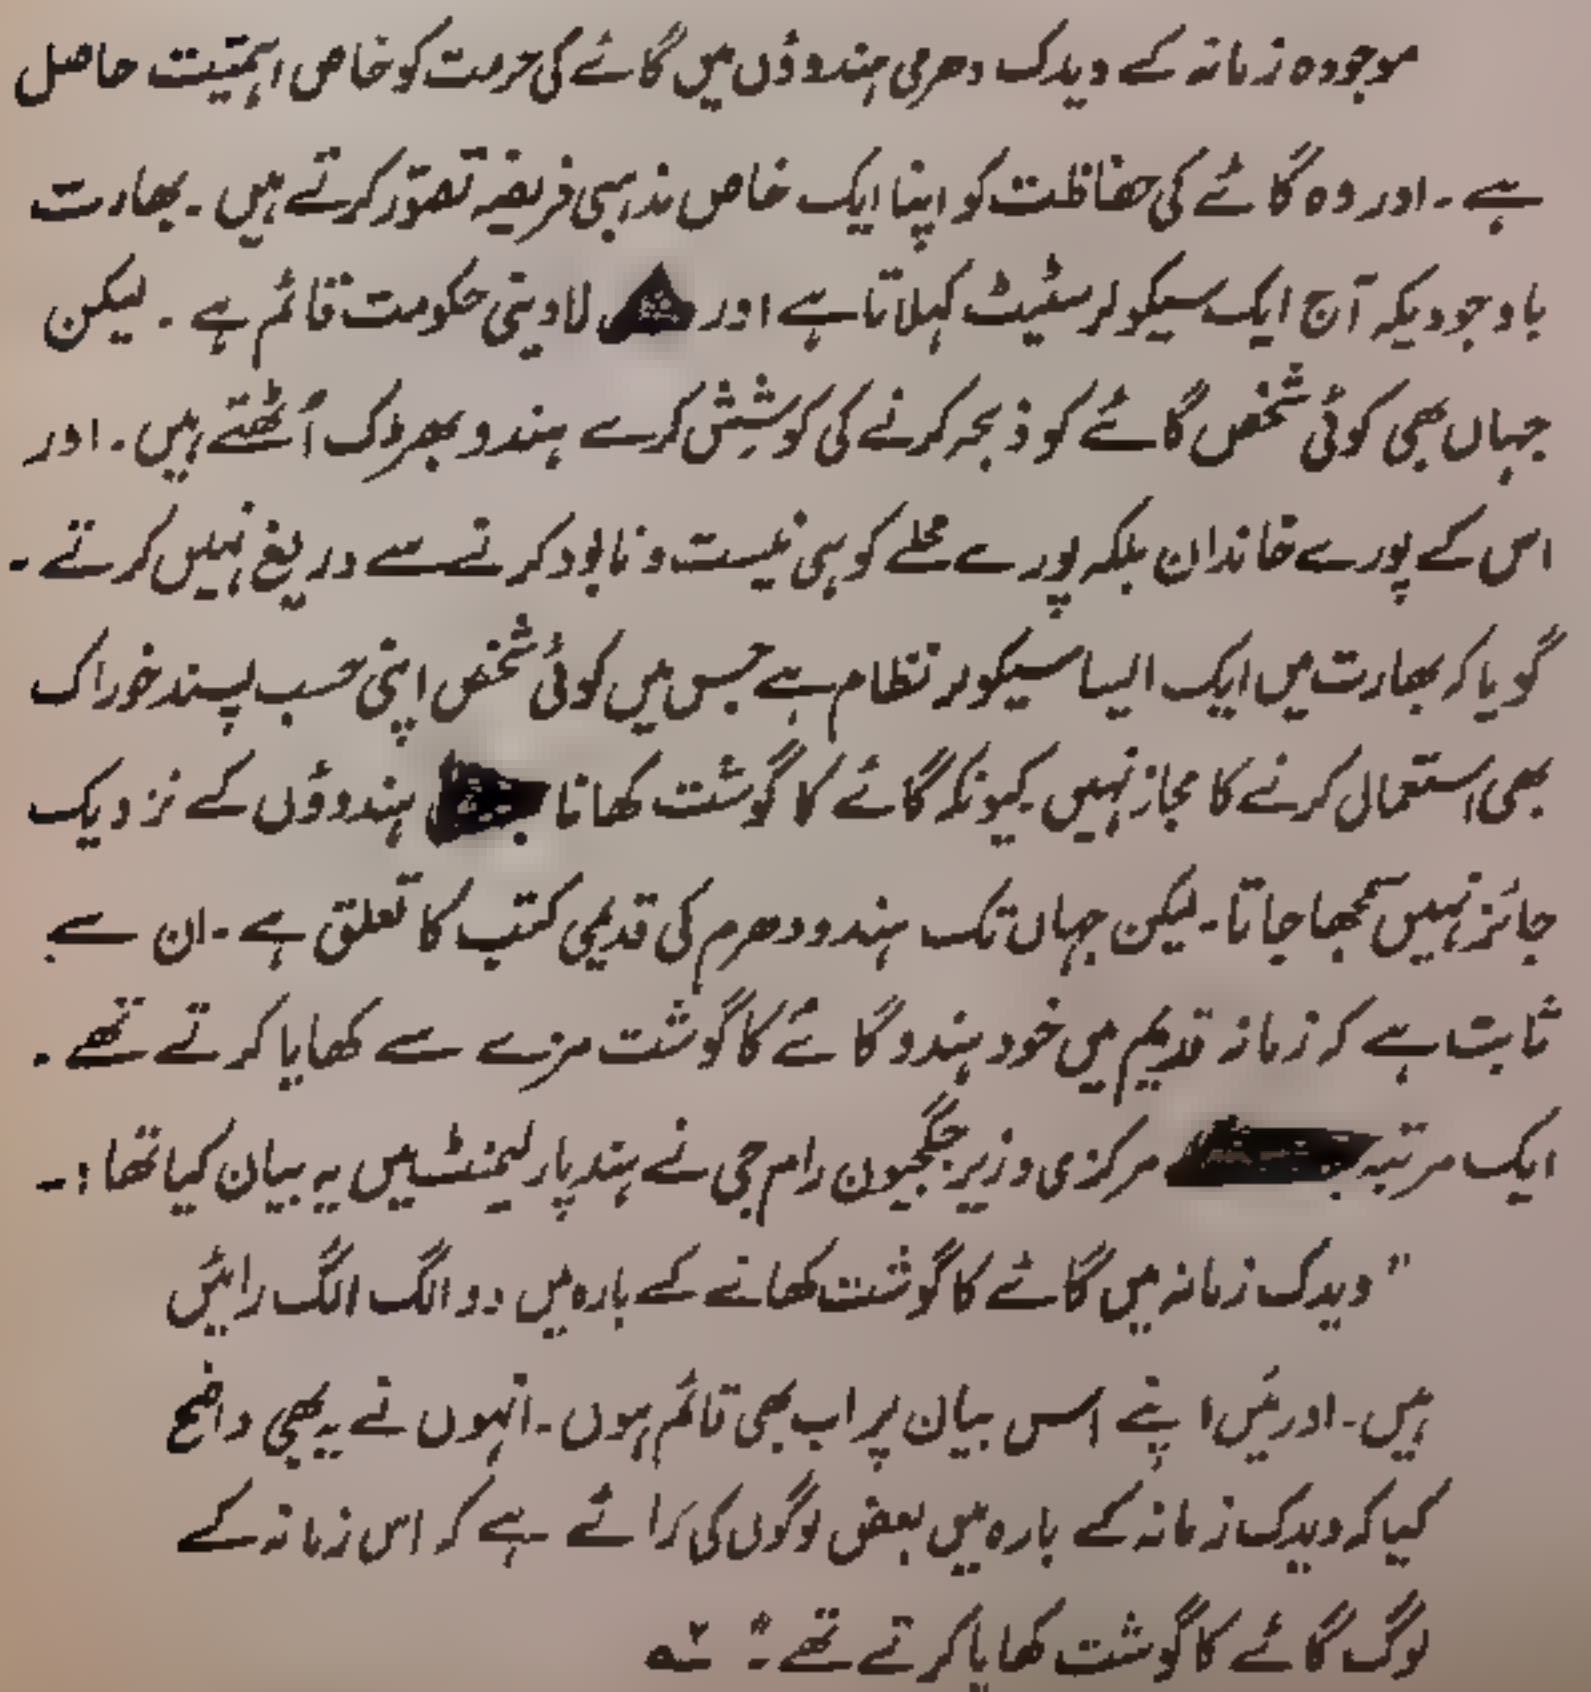 موجودہ زمانہ کے ویدک دھرمی ہندوؤں میں گائے کی حرمت کو خاص اہمیّت حاصل
ہے۔ اور وہ گائے کی حفاظت کو اپنا ایک خاص مذہبی فریضہ تصوّر کرتے ہیں۔ بھارت
باوجودیکہ آج ایک سیکولر سٹیٹ کہلاتا ہے اور لادینی حکومت قائم ہے۔ لیکن
جہاں بھی کوئی شخص گائے کو ذبحہ کرنے کی کوشِش کرے ہندو بھڑک اُٹھتے ہیں۔ اور
اس کے پورے خاندان بلکہ پورے محلے کو ہی نیست و نابود کرنے سے دریغ نہیں کرتے۔
گویا کہ بھارت میں ایک ایسا سیکولر نظام ہے جس میں کوئی شخص اپنی حسب پسند خوراک
بھی استعمال کرنے کا مجاز نہیں کیونکہ گائے کا گوشت کھانا ہندوؤں کے نزدیک
جائز نہیں سمجھا جاتا۔ لیکن جہاں تک ہندو دھرم کی قدیمی کتب کا تعلق ہے۔ ان سے
ثابت ہے کہ زمانہ قدیم میں خود ہندو گائے کا گوشت مزے سے کھایا کرتے تھے۔
ایک مرتبہ مرکزی وزیر جگجیون رام جی نے ہند پارلیمنٹ میں یہ بیان کیا تھا :۔
" ویدک زمانہ میں گائے کا گوشت کھانے کے بارہ میں دو الگ الگ رائیں
ہیں۔ اور مَیں اپنے اس بیان پر اب بھی قائم ہوں۔ انہوں نے یہ بھی واضح
کیا کہ ویدک زمانہ کے بارہ میں بعض لوگوں کی رَائے ہے کہ اس زمانہ کے
لوگ گائے کا گوشت کھایا کرتے تھے۔"